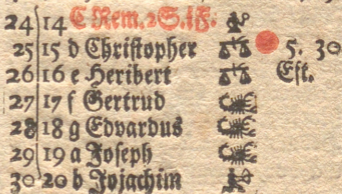 24 14 C Rem. 2 S. i F.
25 15 d Christopher 5. 30
26 16 e Heribert Est.
27 17 f Gertrud
28 18 g Edvardus
29 19 a Joseph
30 20 b Jojachim